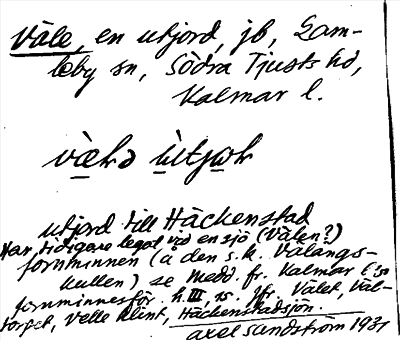 Väle, en utjord, jb, Gam-
leby sn, Södra Tjusts hd,
Kalmar l.
utjord till Häckenstad
Har tidigare legat vid en sjö (Välen?)
fornminnen (å den s.k. Välängs-
kullen) se Medd. fr. Kalmar l:s
fornminnesför. h. III, 15. Jfr. Välet, Väl-
torpet, Velle klint, Häckenstadsjön.
Axel Sandström 1931